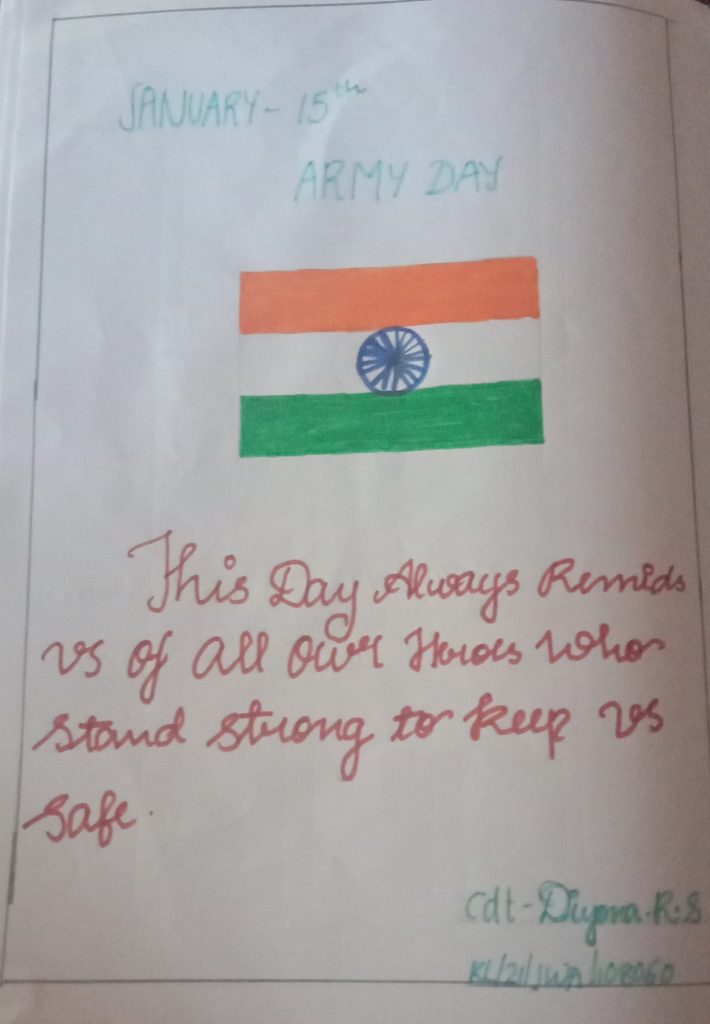 JANUARY - 15th
ARMY DAY
This Day Always Remids
us of all our Heroes who
stand strong to keep us
safe.
Cdt - Diyona.R.S
KL/21/JWA/108060